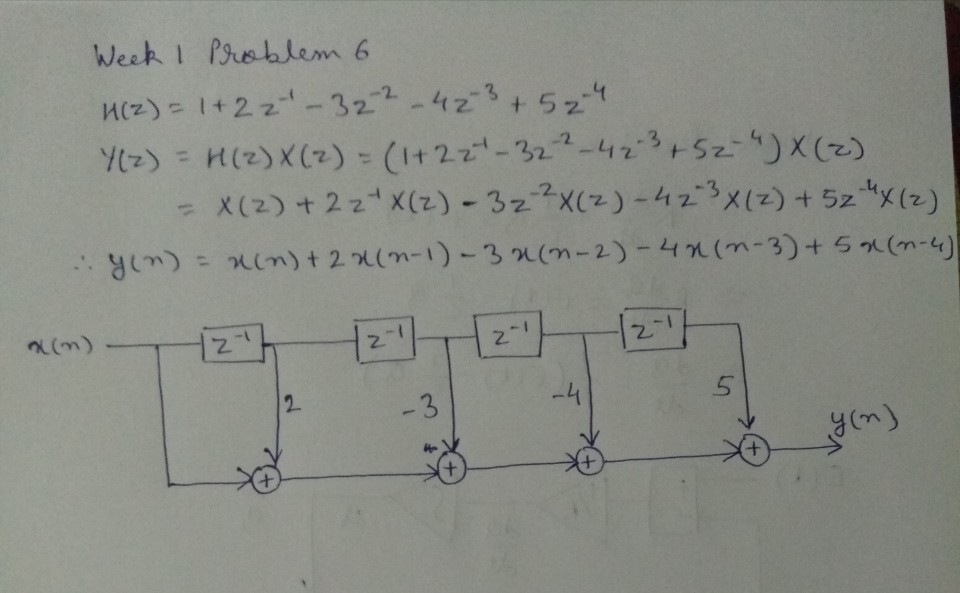 Week 1 Problem 6
H(z) = 1 + 2z⁻¹ - 3z⁻² - 4z⁻³ + 5z⁻⁴
Y(z) = H(z)X(z) = (1+2z⁻¹-3z⁻²-4z⁻³+5z⁻⁴)X(z)
= X(z) + 2z⁻¹X(z) - 3z⁻²X(z) - 4z⁻³X(z) + 5z⁻⁴X(z)
∴ y(n) = x(n) + 2x(n-1) - 3x(n-2) - 4x(n-3) + 5x(n-4)
x(n) z⁻¹ z⁻¹ z⁻¹ z⁻¹
2 -3 -4 5
y(n)
+ + + +